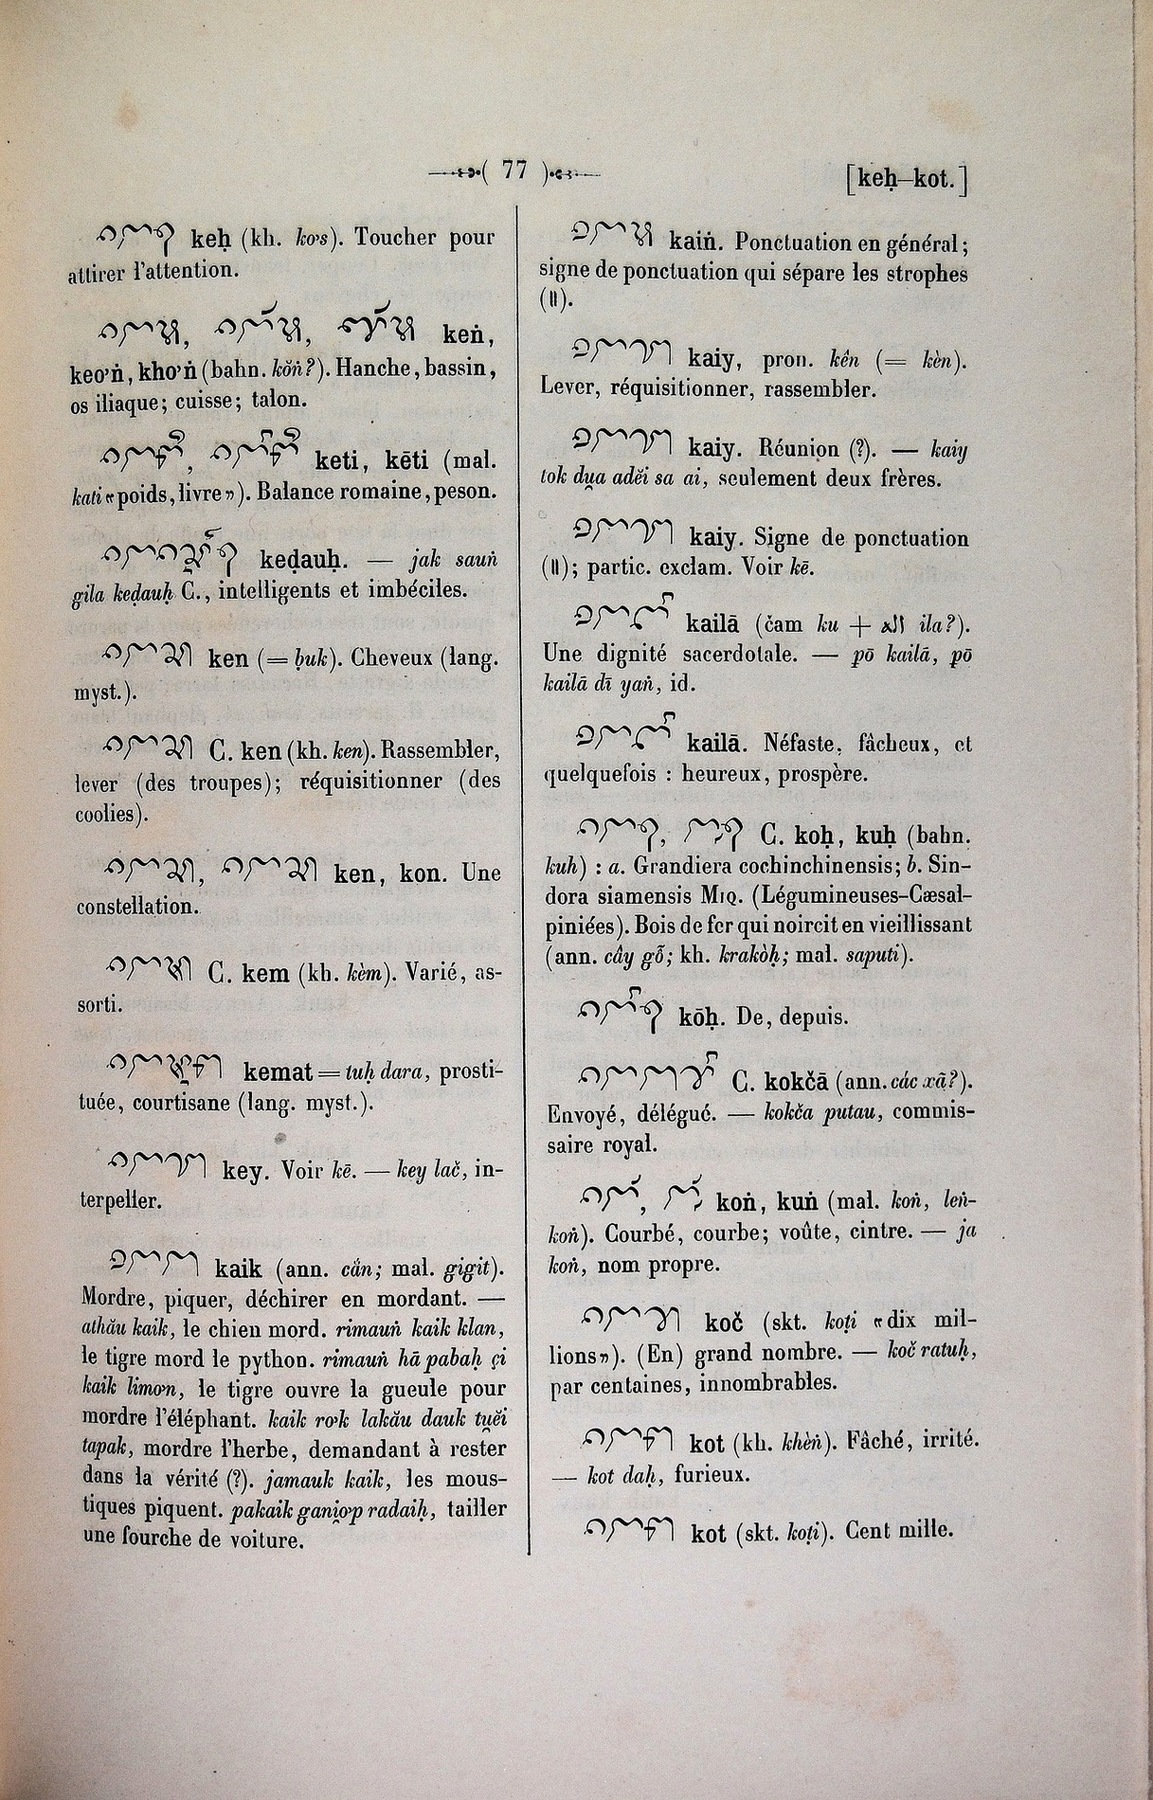 ( 77 )
[keḥ–kot.]
keḥ (kh. ko's). Toucher pour
attirer l'attention.
keṅ,
keo'ṅ, kho'ṅ (bahn. kŏṅ?). Hanche, bassin,
os iliaque; cuisse; talon.
keti, kēti (mal.
kati «poids, livre»). Balance romaine, peson.
keḍauḥ. — jak sauṅ
gila keḍauḥ C., intelligents et imbéciles.
ken (= ḅuk). Cheveux (lang.
myst.).
C. ken (kh. ken). Rassembler,
lever (des troupes); réquisitionner (des
coolies).
ken, kon. Une
constellation.
C. kem (kh. kèm). Varié, as-
sorti.
kemat = tuḥ dara, prosti-
tuée, courtisane (lang. myst.).
key. Voir kē. — key lač, in-
terpeller.
kaik (ann. cắn; mal. gigit).
Mordre, piquer, déchirer en mordant. —
athău kaik, le chien mord. rimauṅ kaik klan,
le tigre mord le python. rimauṅ hā pabaḥ çi
kaik limo'n, le tigre ouvre la gueule pour
mordre l'éléphant. kaik ro'k lakău dauk tu̯ĕi
tapak, mordre l'herbe, demandant à rester
dans la vérité (?). jamauk kaik, les mous-
tiques piquent. pakaik gani̯o'p radaiḥ, tailler
une fourche de voiture.
kaiṅ. Ponctuation en général;
signe de ponctuation qui sépare les strophes
(॥).
kaiy, pron. kên (= kèn).
Lever, réquisitionner, rassembler.
kaiy. Réunion (?). — kaiy
tok du̯a adĕi sa ai, seulement deux frères.
kaiy. Signe de ponctuation
(॥); partic. exclam. Voir kē.
kailā (čam ku + ila?).
Une dignité sacerdotale. — pō kailā, pō
kailā dī yaṅ, id.
kailā. Néfaste, fâcheux, et
quelquefois : heureux, prospère.
C. koḥ, kuḥ (bahn.
kuh) : a. Grandiera cochinchinensis; b. Sin-
dora siamensis Miq. (Légumineuses-Cæsal-
piniées). Bois de fer qui noircit en vieillissant
(ann. cây gỗ; kh. krakòḥ; mal. saputi).
kōḥ. De, depuis.
C. kokčā (ann. các xã?).
Envoyé, délégué. — kokča putau, commis-
saire royal.
koṅ, kuṅ (mal. koṅ, leṅ-
koṅ). Courbé, courbe; voûte, cintre. — ja
koṅ, nom propre.
koč (skt. koṭi «dix mil-
lions»). (En) grand nombre. — koč ratuḥ,
par centaines, innombrables.
kot (kh. khèṅ). Fâché, irrité.
— kot daḥ, furieux.
kot (skt. koṭi). Cent mille.